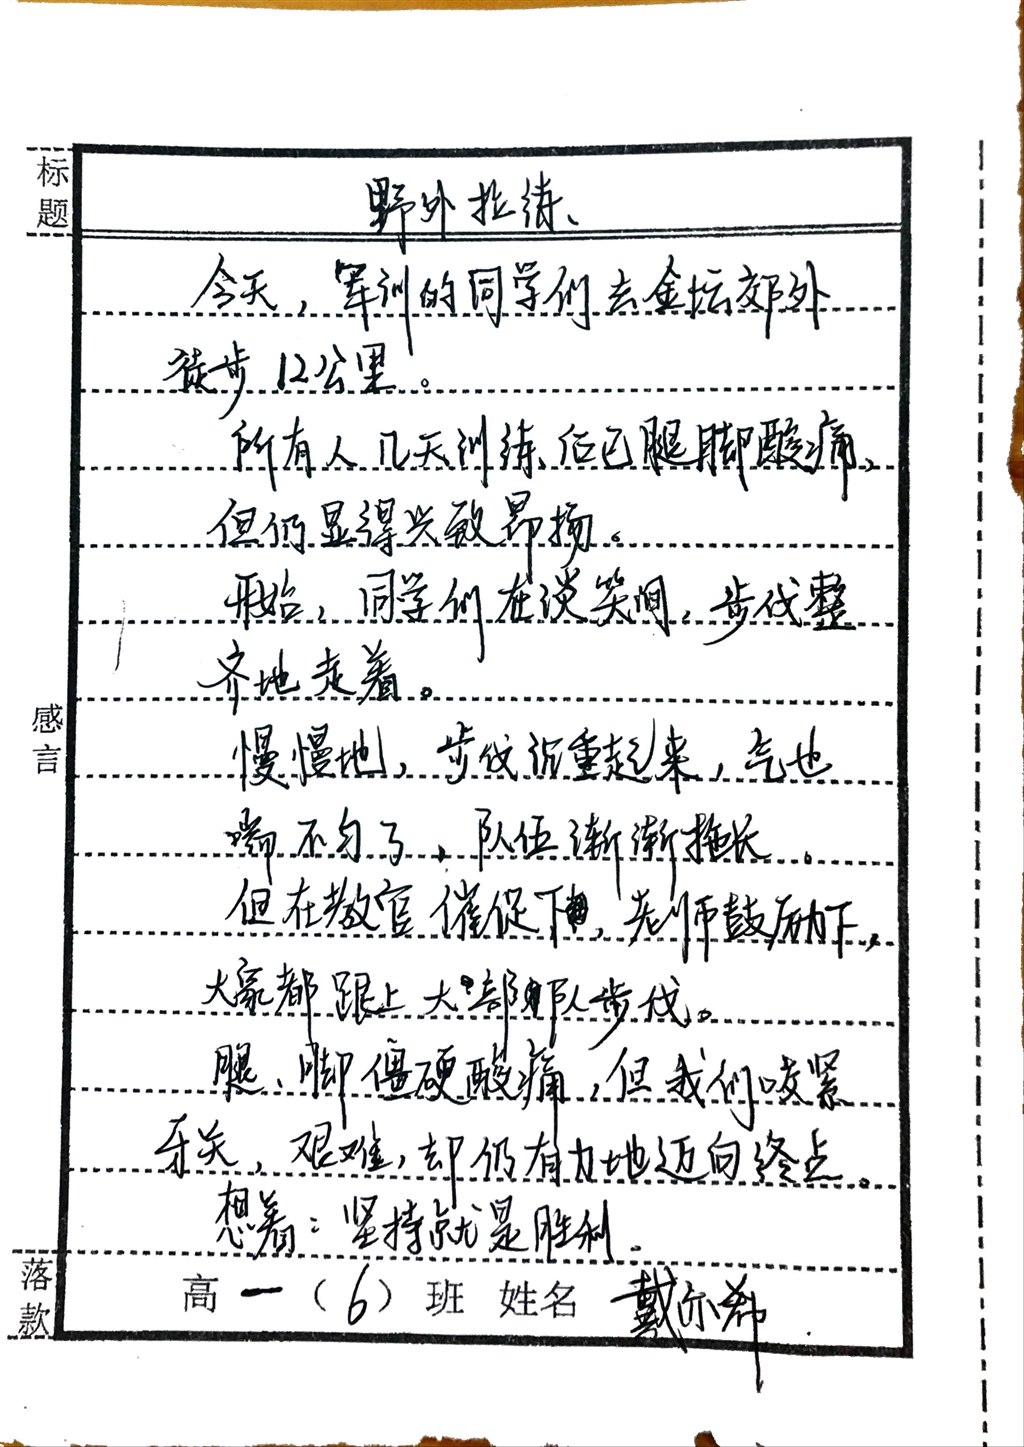 标题
野外拉练、
今天，军训的同学们去金坛郊外
徒步12公里。
所有人几天训练后已腿脚酸痛，
但仍显得兴致昂扬。
开始，同学们在谈笑间，步伐整
齐地走着。
感言
慢慢地，步伐沉重起来，气也
喘不匀了，队伍渐渐拖长。
但在教官催促下，老师鼓励下，
大家都跟上大部队步伐。
腿、脚僵硬酸痛，但我们咬紧
牙关，艰难，却仍有力地迈向终点。
想着：坚持就是胜利。
落款
高一（6）班 姓名 戴尔希